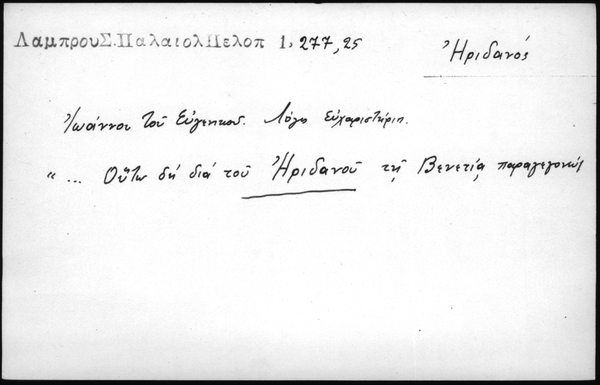 ΛαμπρουΣ.ΠαλαιολΠελοπ 1, 277, 25
Ἠριδανός
Ἰωάννου τοῦ Εὐγενικοῦ. Λόγος Εὐχαριστήρι.
"... Οὕτω δή διά τοῦ Ἠριδανοῦ τῇ Βενετίᾳ παραγεγονώς